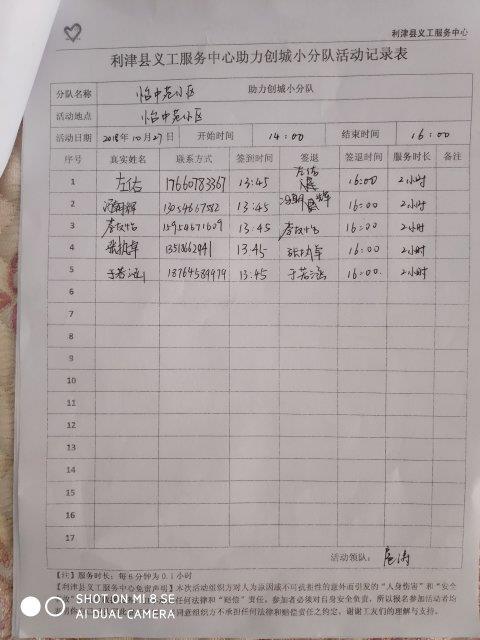 利津县义工服务中心
利津县义工服务中心助力创城小分队活动记录表
分队名称 怡中苑小区 助力创城小分队
活动地点 怡中苑小区
活动日期 2018年10月27日 开始时间 14:00 结束时间 16:00
序号 真实姓名 联系方式 签到时间 签退 签退时间 服务时长 备注
1 左佑 17660783367 13:45 左佑 16:00 2小时
2 13054667582 13:45 16:00 2小时
3 15954671609 13:45 16:00 2小时
4 张执卓 13:45 张执卓 16:00 2小时
5 于若涵 18764589979 13:45 于若涵 16:00 2小时
6
7
8
9
10
11
12
13
14
15
16
17
活动领队:
【注】服务时长:每6分钟为0.1小时
【利津县义工服务中心免责声明】本次活动组织方对人为原因或不可抗拒性的意外而引发的“人身伤害”和“安全
任何法律和“赔偿”责任。参加者必须对自身安全负责,所以报名参加活动者均
同意组织方不承担任何法律和赔偿责任之约定,谢谢工友们的理解与支持。
SHOT ON MI 8 SE
AI DUAL CAMERA